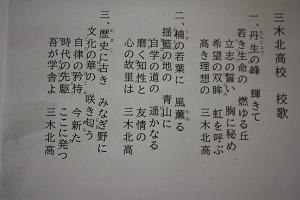 三木北高校 校歌
一、丹生の峰 輝きて
若き生命の 燃ゆる丘
立志の誓い 胸に秘め
希望の双眸 虹を呼ぶ
高き理想の 三木北高
二、楠の若葉に 風薫る
揺籃の地の 青山に
自学の道の 遥かなる
磨く知性と 友情の
心の故里は 三木北高
三、歴史に古き みなぎ野に
文化の華の 咲き匂う
自律の矜恃 今新た
時代の先駆 ここに発つ
吾が学舎よ 三木北高